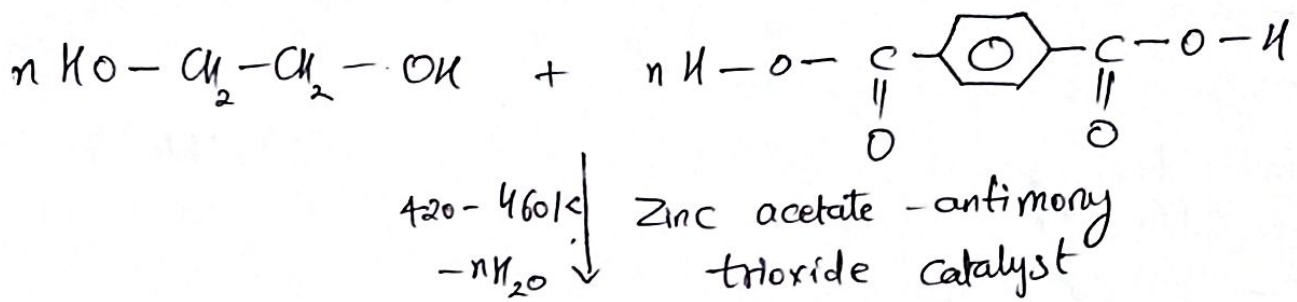 n HO – CH₂ – CH₂ – OH + n H – O – C – C – O – H
O O
420 - 460K Zinc acetate - antimony
-nH₂O trioxide catalyst